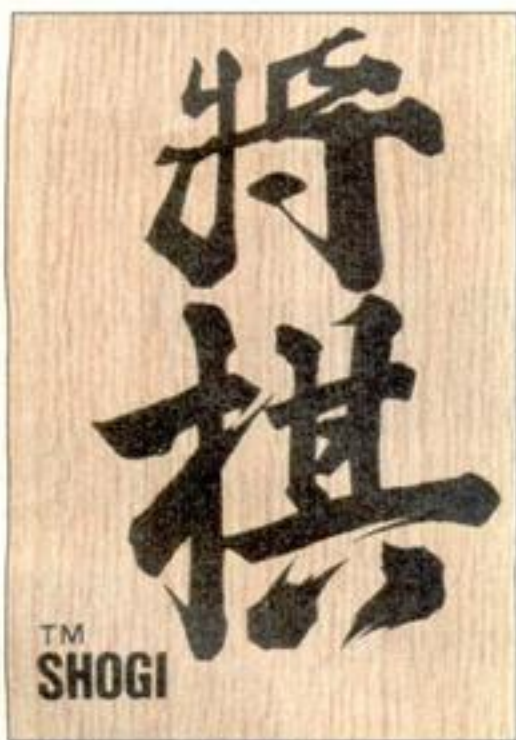 将棋
TM
SHOGI